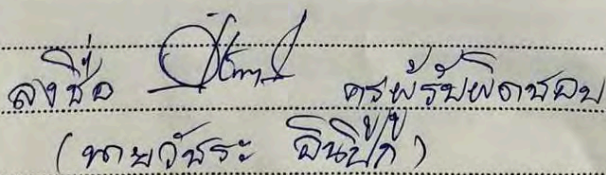 ลงชื่อ ครูผู้รับผิดชอบ
(นายวัชระ อินปุ๊ก)